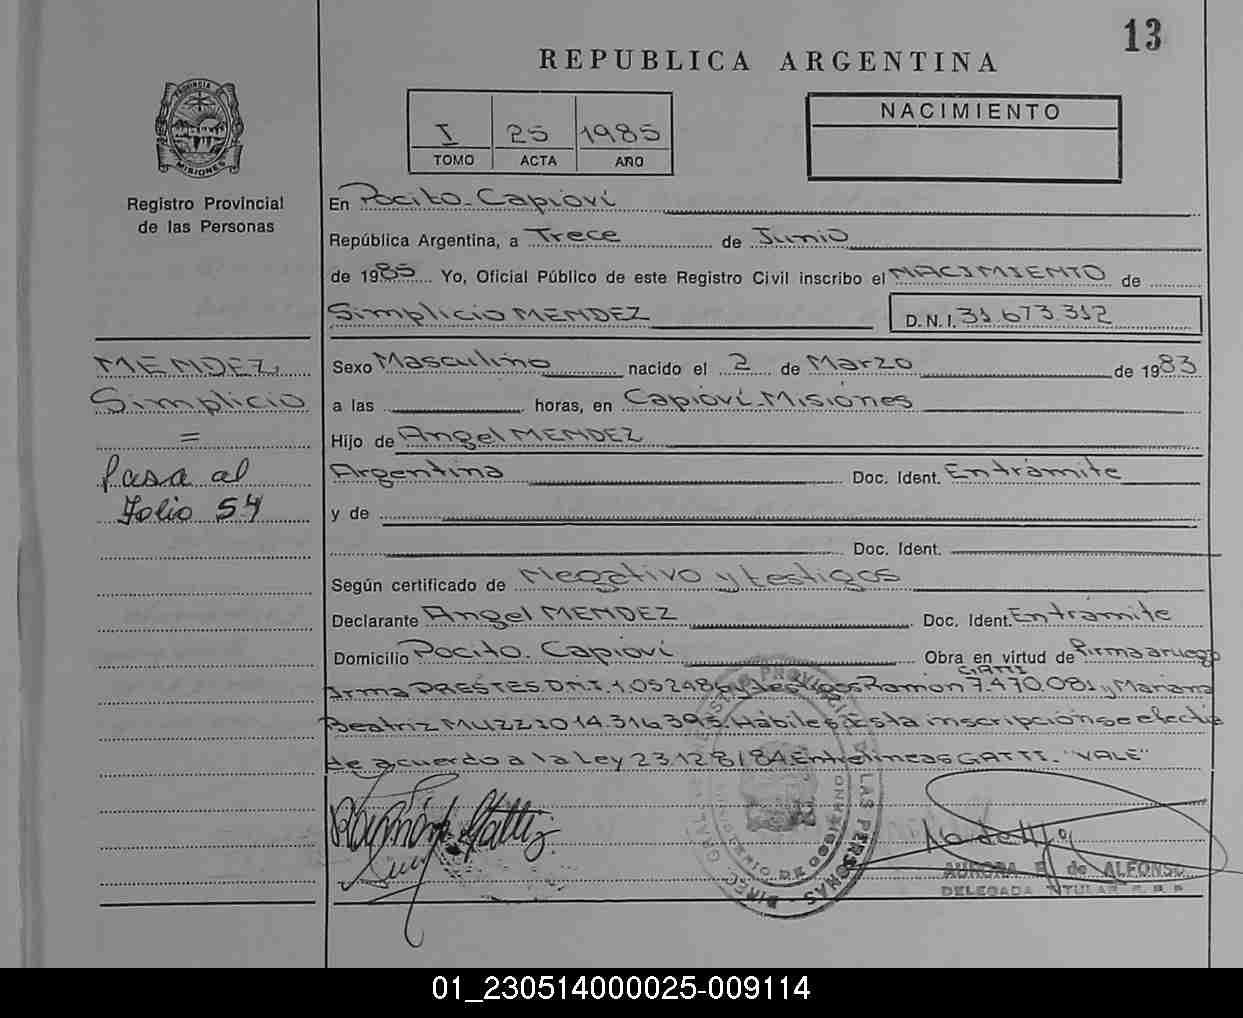 13
REPUBLICA ARGENTINA
PROVINCIA DE
MISIONES
Registro Provincial
de las Personas
I 25 1985
TOMO ACTA AÑO
NACIMIENTO
En Pocito - Capioví
República Argentina, a Trece de Junio
de 1985 Yo, Oficial Público de este Registro Civil inscribo el NACIMIENTO de
Simplicio MENDEZ D.N.I. 31.673.312
MENDEZ,
Simplicio
=
Pasa al
Folio 54
Sexo Masculino nacido el 2 de Marzo de 1983
a las horas, en Capioví - Misiones
Hijo de Angel MENDEZ
Argentina Doc. Ident. En trámite
y de
Doc. Ident.
Según certificado de Negativo y testigos
Declarante Angel MENDEZ Doc. Ident. En trámite
Domicilio Pocito - Capioví Obra en virtud de firma a ruego
GATTI
Irma PRESTES D.N.I. y testigos Ramón 7.470.081 y Mariana
Beatriz MUZZIO 14.316.395. Hábiles. Esta inscripción se efectúa
de acuerdo a la Ley 23.128/84. Entrelineas GATTI. "VALE"
Ramón Gatti
AURORA de ALFONSO
DELEGADA TITULAR
01_230514000025-009114